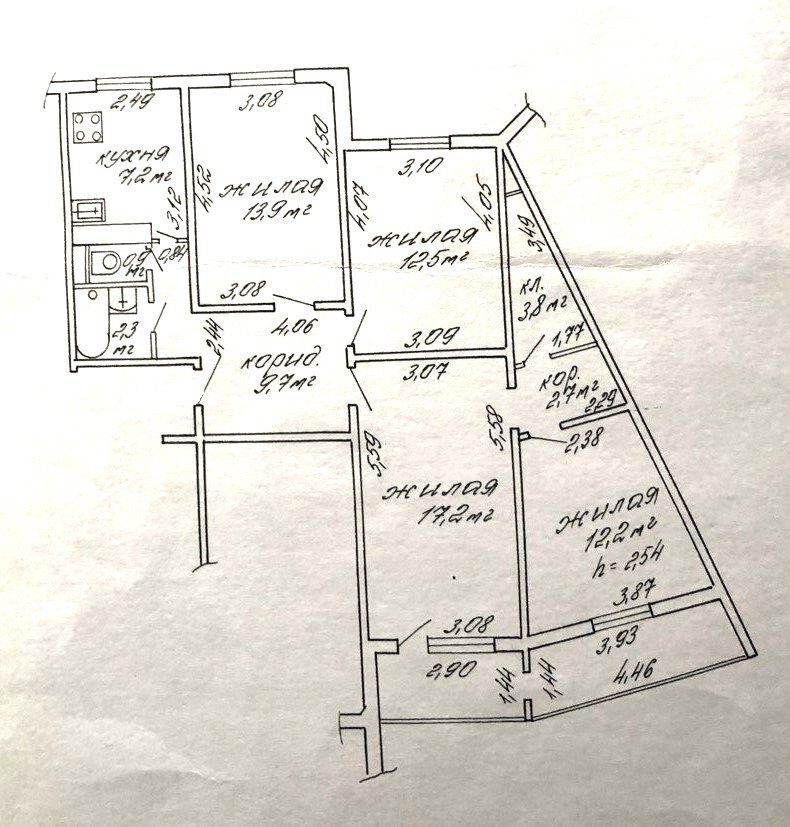 2,49
кухня
7,2 м²
3,12
0,9
м²
0,84
2,3
м²
3,08
4,50
4,52
жилая
13,9 м²
3,08
3,10
4,07
4,05
жилая
12,5 м²
3,09
2,44
4,06
корид.
9,7 м²
3,49
кл.
3,8 м²
1,77
кор.
2,7 м²
2,29
2,38
3,07
5,59
5,58
жилая
17,2 м²
3,08
жилая
12,2 м²
h = 2,54
3,87
2,90
1,44
1,44
3,93
4,46